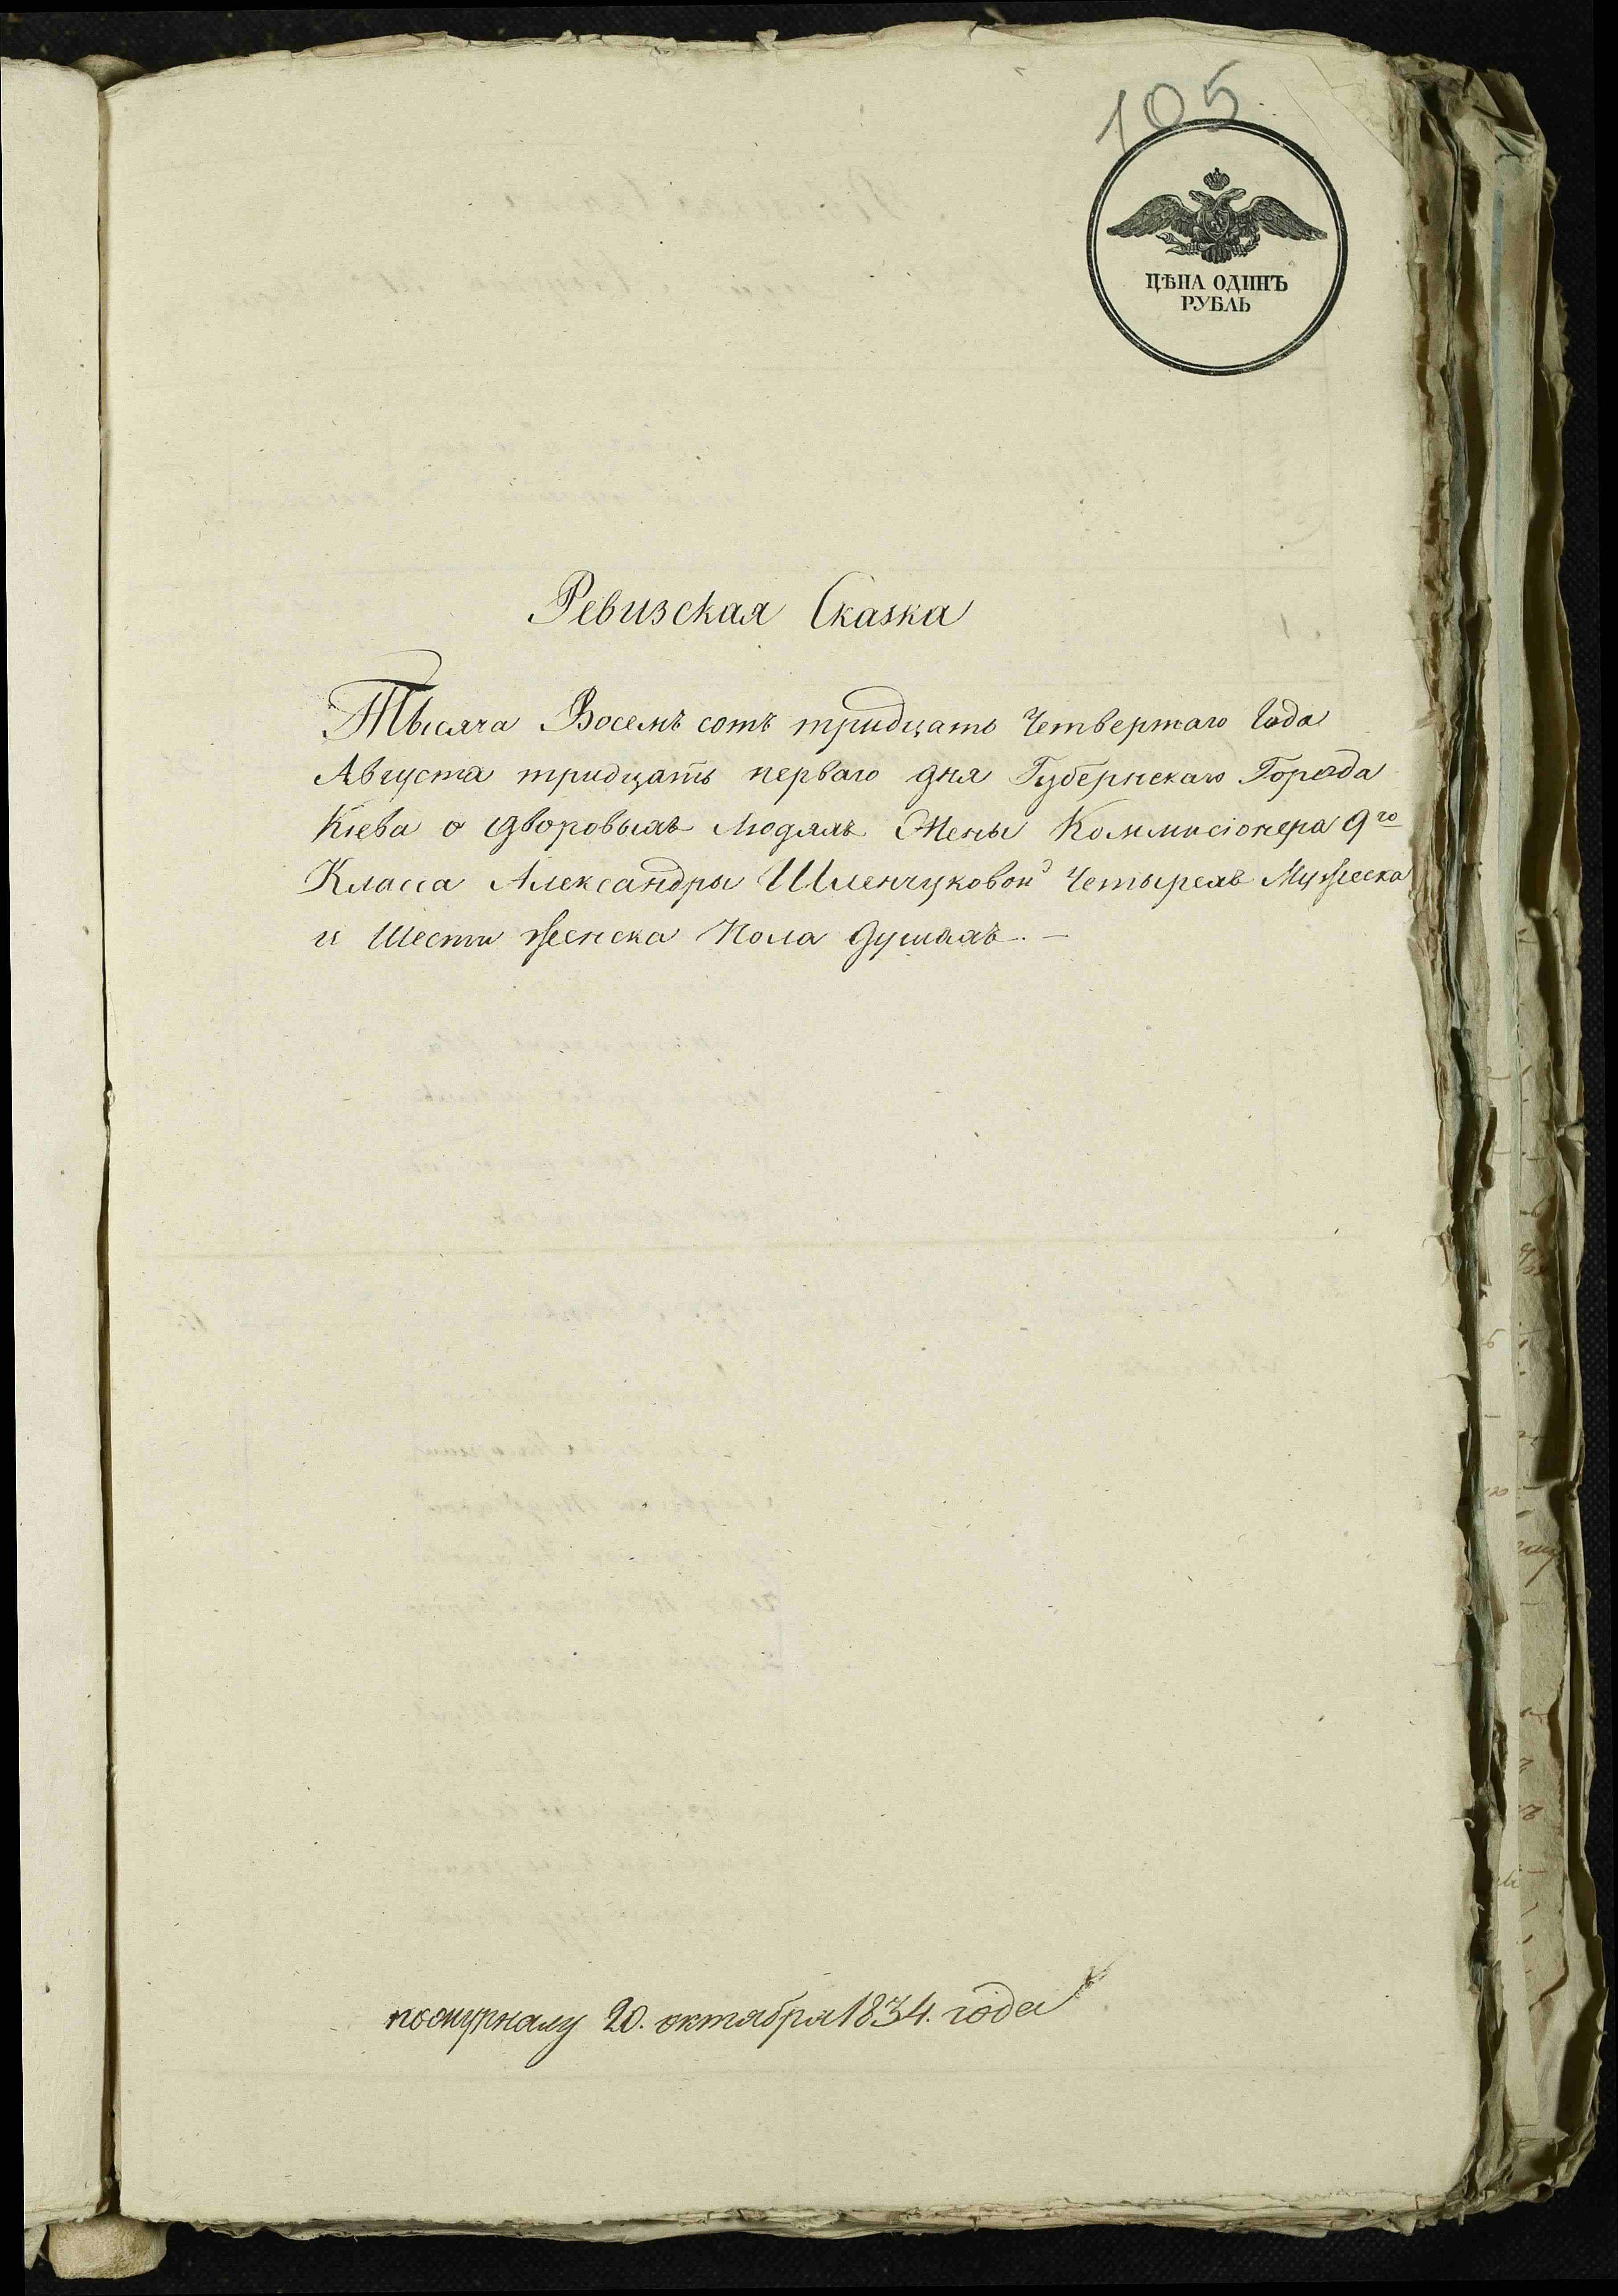 105
ЦѢНА ОДИНЪ
РУБЛЬ
Ревизская Сказка
Тысяча Восемъ сотъ тридцать Четвертаго Года
Августа тридцать перваго дня Губернскаго Города
Кіева о дворовыхъ людяхъ Жены Коммисіонера 9го
Класса Александры Шленчуковой Четырехъ Мужеска
и Шести женска Пола душахъ. —
по журналу 20. октября 1834. года